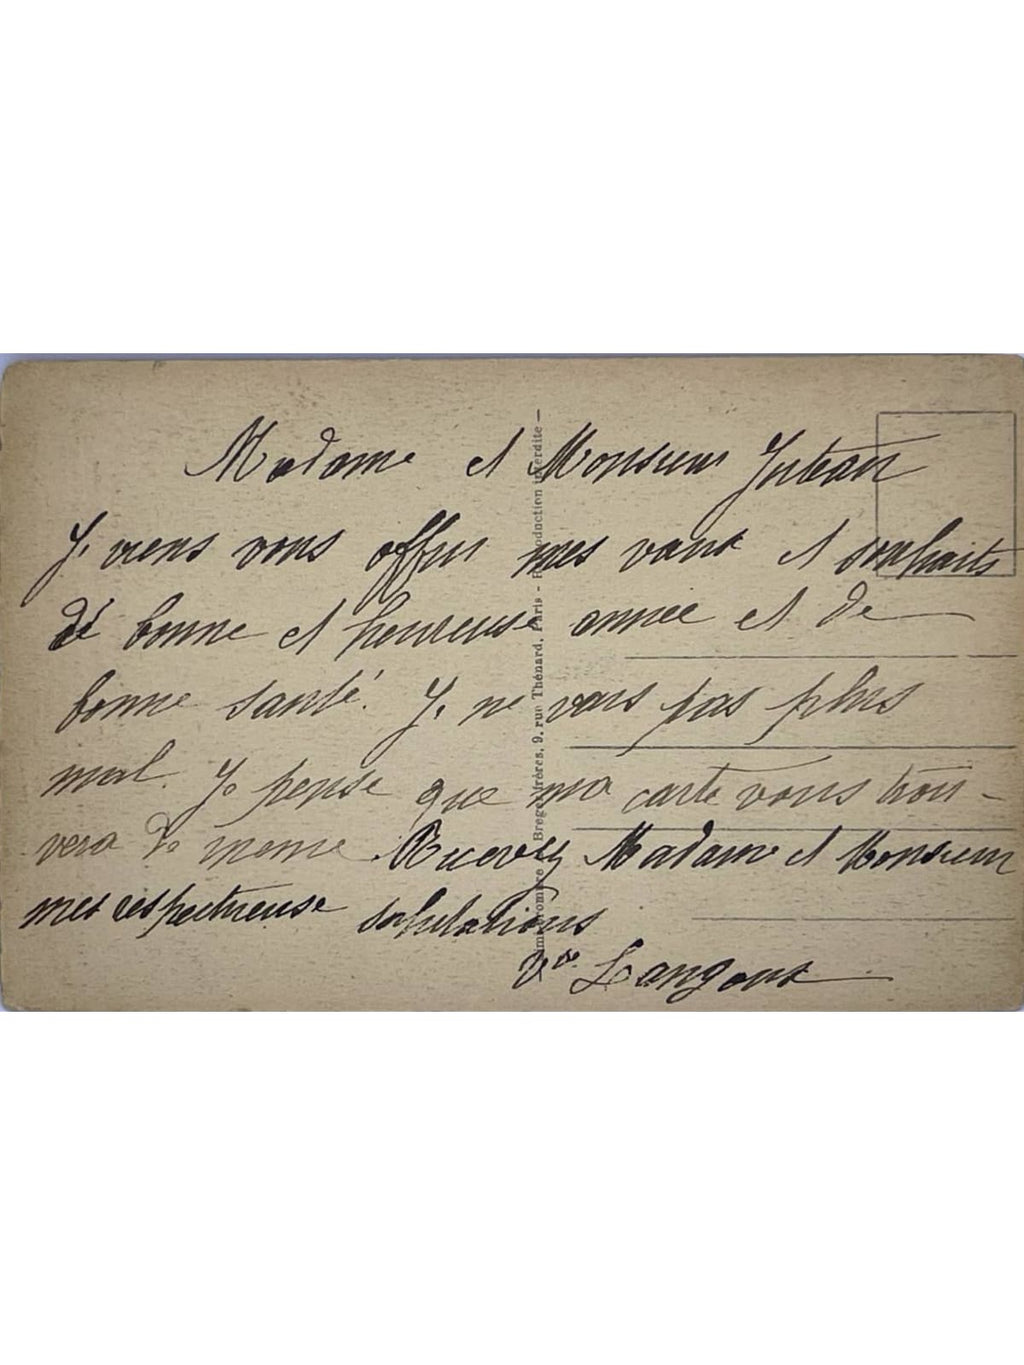 Madame et Monsieur Jutean
Je viens vous offrir mes vœux et souhaits
de bonne et heureuse année et de
bonne santé. Je ne vais pas plus
mal. Je pense que ma carte vous trou-
vera de meme. Recevez Madame et Monsieur
mes respectueuse salutations
Vve Langoux
Breger frères, 9, rue Thénard, Paris - Reproduction interdite -